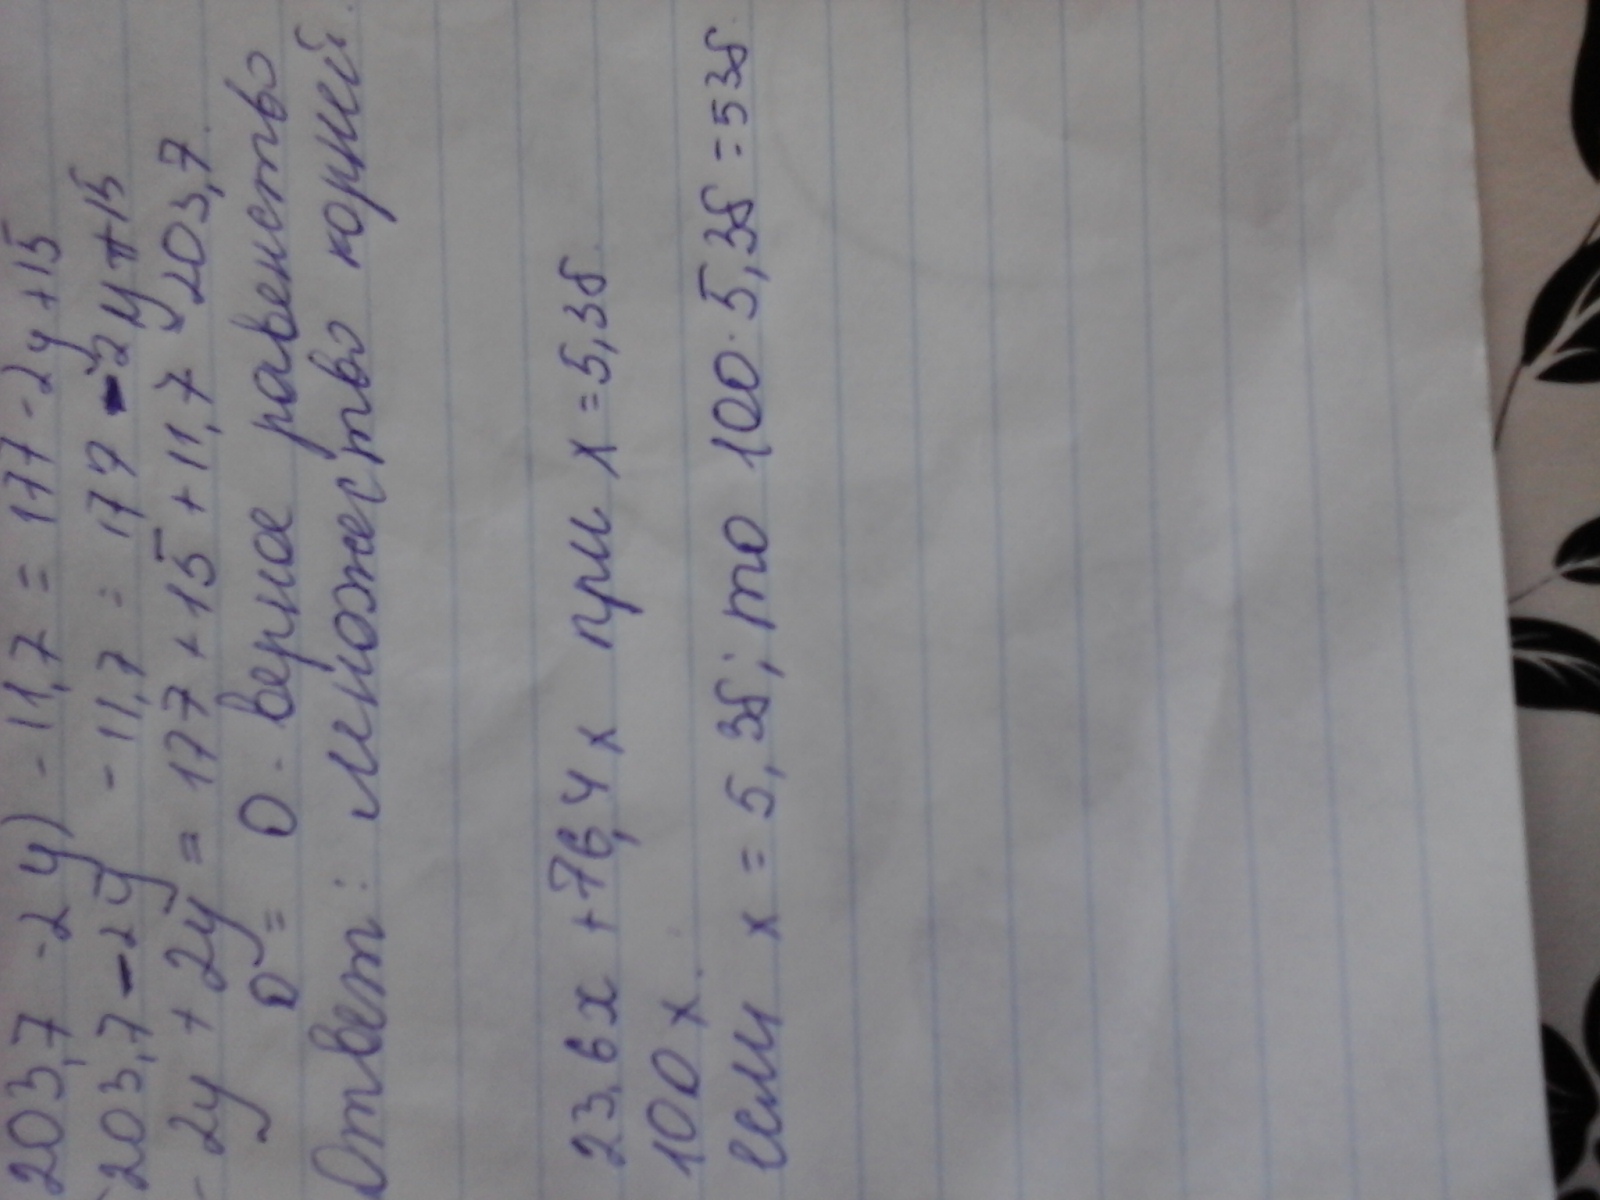 203,7 -2y) -11,7 = 177 -2y +15
203,7 -2y -11,7 = 177 -2y +15
-2y + 2y = 177 +15 +11,7 -203,7.
0 = 0 - верное равенство
Ответ: множество корней.
23,6x +76,4x при x = 5,38.
100x.
если x = 5,38; то 100 · 5,38 = 538.